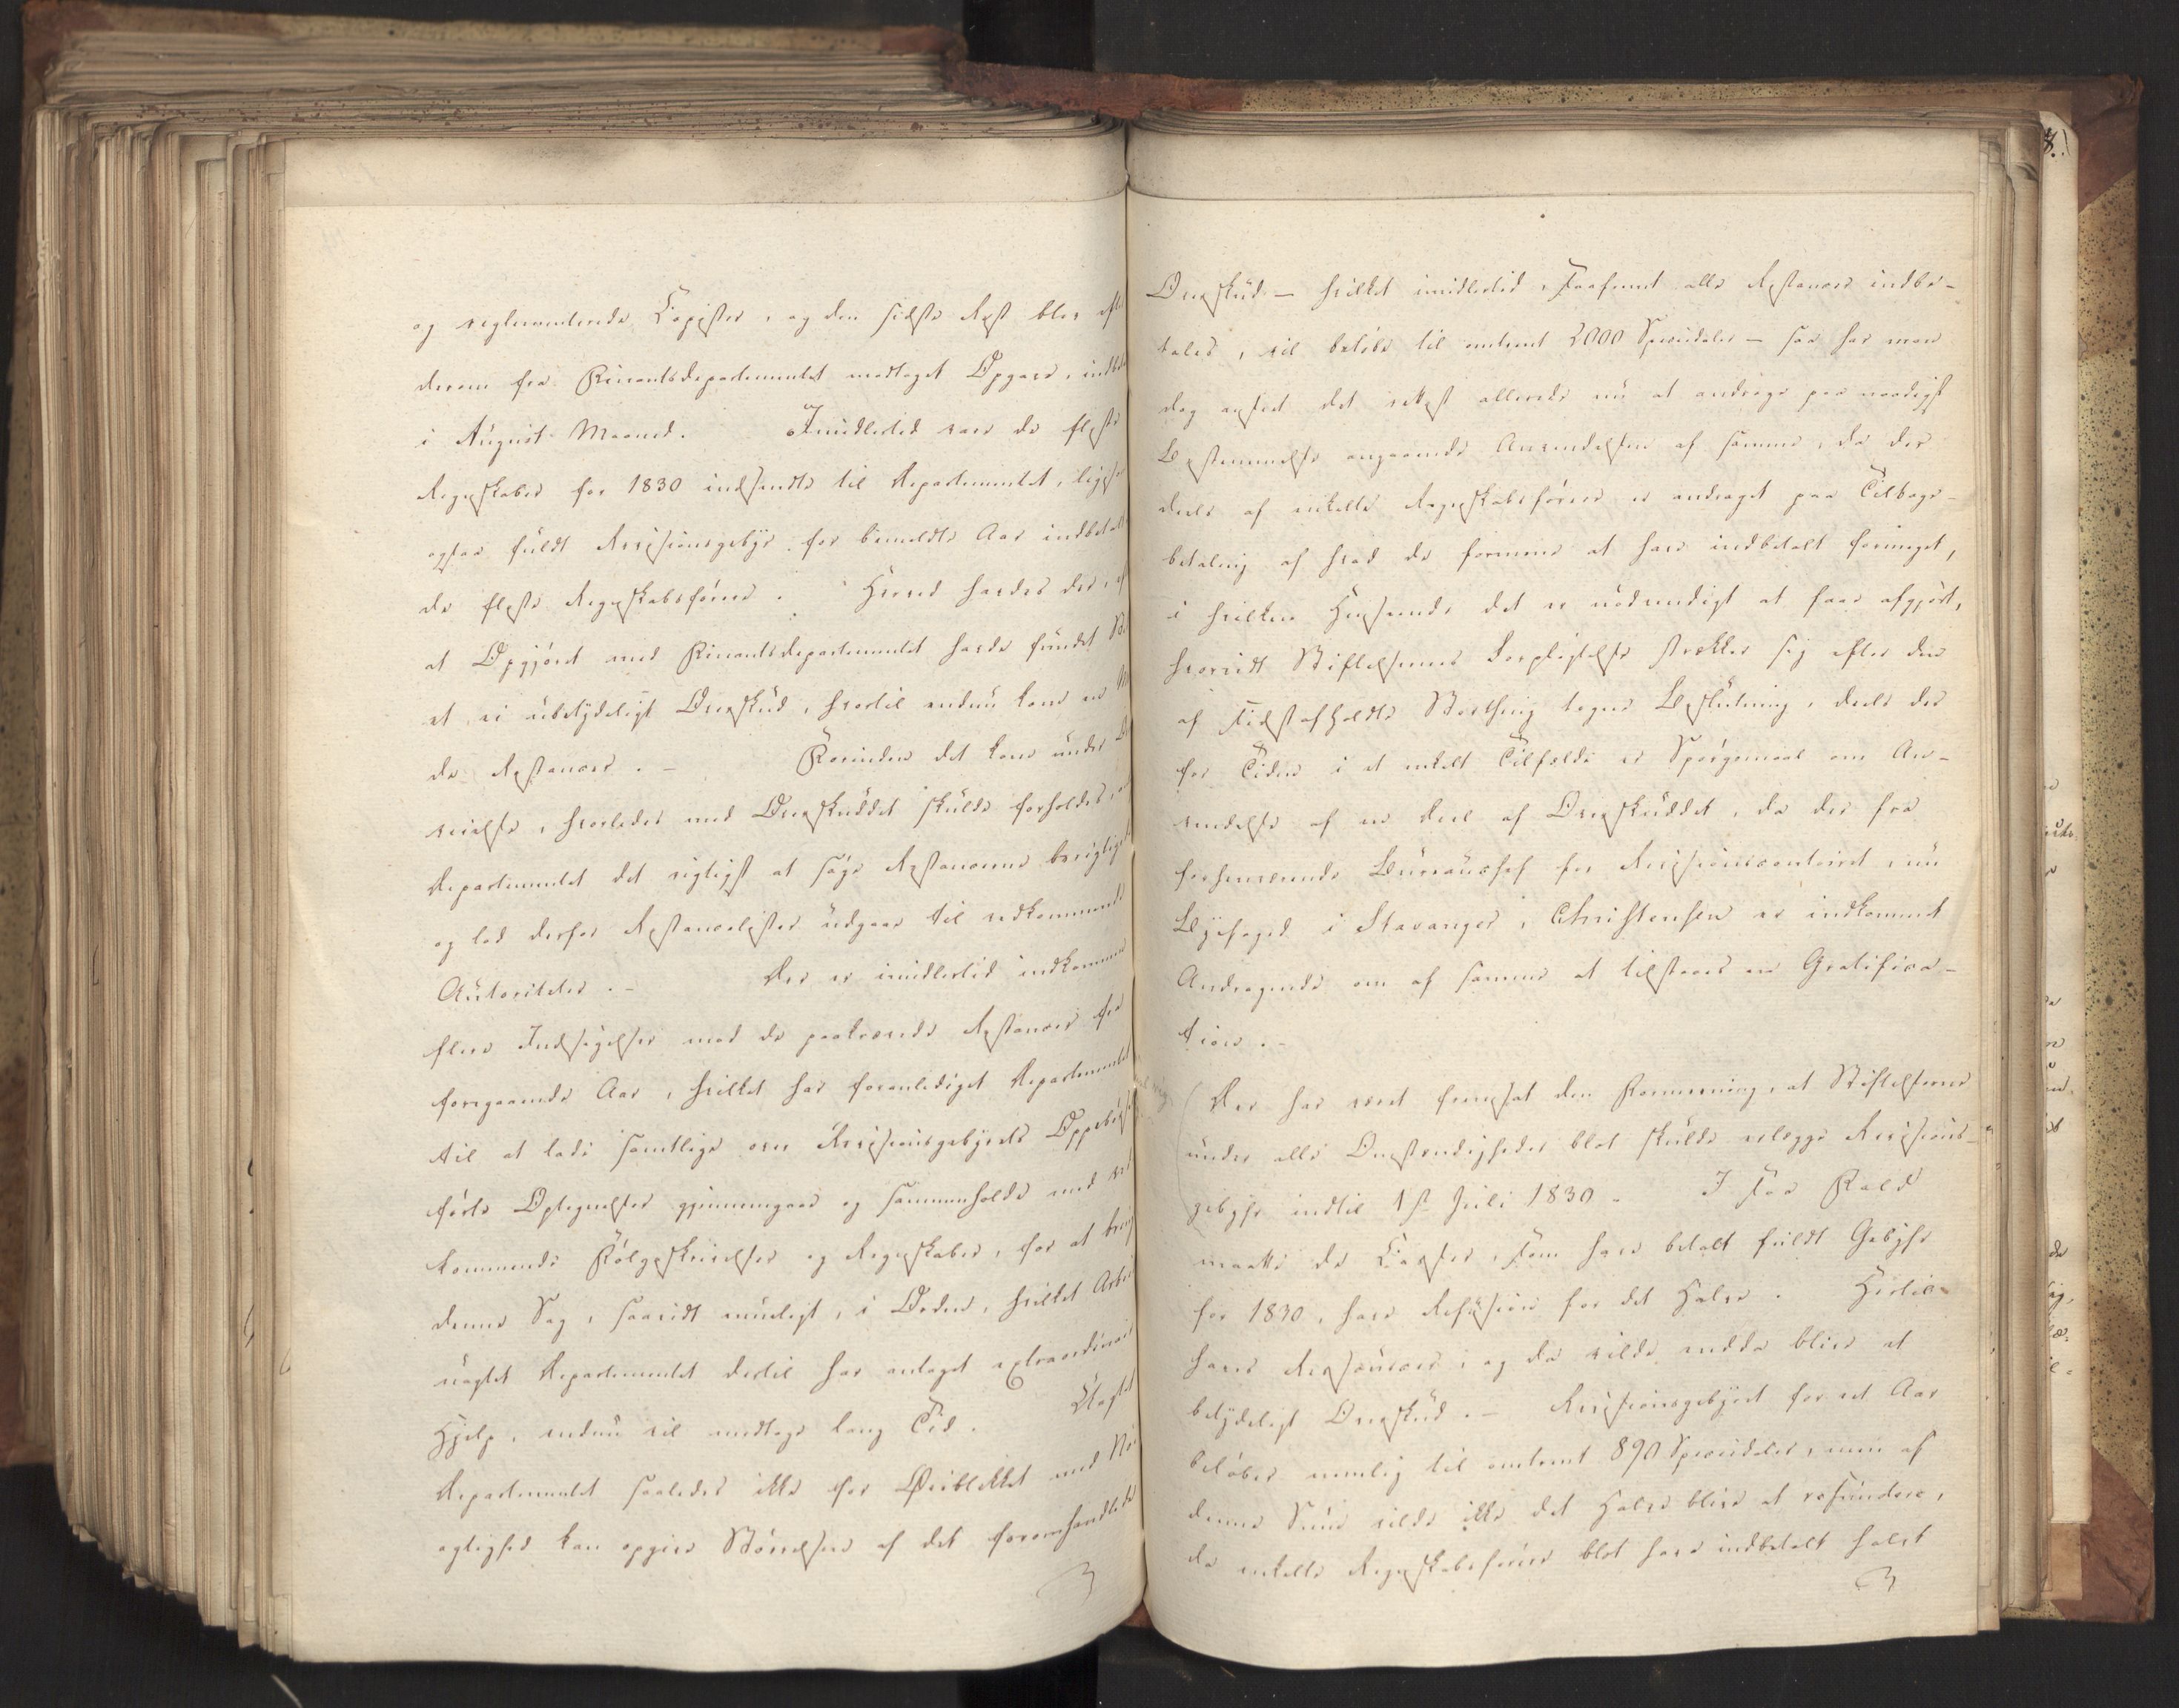 og reglementerede Copister, og den sidste Rest blev efter
derom fra Finantsdepartementet modtaget Opgave, indbe
i August Maaned. Imidlertid vare de fleste
Regnskaber for 1830 indsendte til Departementet, ligesom
ogsaa fuldt Revisionsgebyr for bemeldte Aar indbetalt
de fleste Regnskabsførere. Herved havdes der,
at Opgjøret med Finantsdepartementet havde fundet
et ei ubetydeligt Overskud, hvortil endnu kom en
de Restancer. – Forinden det kom under
veielse, hvorledes med Overskuddet skulde forholdes,
Departementet det rigtigst at søge Restancerne berigtiget
og lod derfor Restancelister udgaae til vedkommende
Autoriteter. – Der er imidlertid indkommen
flere Indsigelser mod de paakrævede Restancer fra
foregaaende Aar, hvilket har foranlediget Departementet
til at lade samtlige over Revisionsgebyrets Oppebørsel
førte Optegnelser gjennemgaae og sammenholde med ved
kommende Følgeskrivelser og Regnskaber, for at bring
denne Sag, saavidt muligt, i Orden, hvilket Arbei
uagtet Departementet dertil har antaget extraordinair
Hjelp, endnu vil medtage lang Tid. Uagtet
Departementet saaledes ikke for Øieblikket med Nøi
agtighed kan opgive Størrelsen af det foromhandlede
Overskud – hvilket imidlertid, saafremt alle Restancer indbe-
tales, vil beløbe til omtrent 2000 Speciedaler – saa har man
dog anseet det rettest allerede nu at andrage paa naadigst
Bestemmelse angaaende Anvendelsen af samme, da der
deels af enkelte Regnskabsførere er andraget paa Tilbage-
betaling af hvad de formene at have indbetalt formeget,
i hvilken Henseende det er nødvendigt at faae afgjort,
hvorvidt Stiftelsernes Forpligtelse strækker sig efter den
af sidstafholdte Storthing tagne Beslutning, deels der
for Tiden i et enkelt Tilfælde er Spørgsmaal om An-
vendelse af en Deel af Overskuddet, da der fra
forhenværende Bureauchef for Revisionscontoiret, nu
Byefoged i Stavanger, Christensen er indkommet
Andragende om af samme at tilstaaes en Gratifica-
tion. –
Der har været fremsat den Formening, at Stiftelserne
under alle Omstændigheder blot skulde erlægge Revisions-
gebyhr indtil 1st Juli 1830 – I saa Fald
maatte de Casser, som have betalt fuldt Gebyhr
for 1830, have Refusion for det Halve. Hertil
haves Ressourcer, og da vilde endda blive et
betydeligt Overskud. – Revisionsgebyret for et Aar
beløber nemlig til omtrent 890 Speciedaler, men af
denne Sum vilde ikke det Halve blive at refundere,
da enkelte Regnskabsførere blot have indbetalt halvt